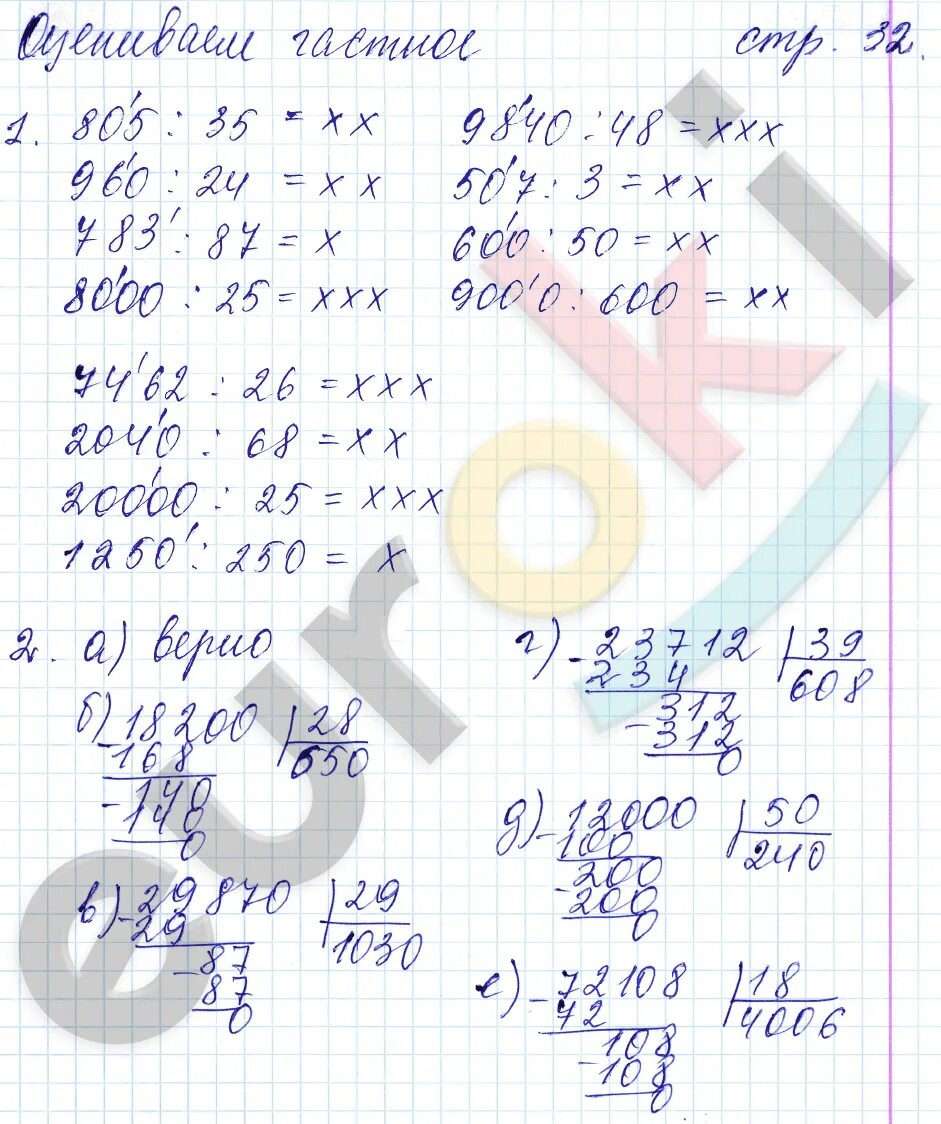 Оцениваем частное стр. 32.
1. 80'5 : 35 = х х
96'0 : 24 = х х
783' : 87 = х
80'00 : 25 = ххх
98'40 : 48 = ххх
50'7 : 3 = хх
60'0 : 50 = хх
900'0 : 600 = хх
74'62 : 26 = ххх
204'0 : 68 = хх
200'00 : 25 = ххх
1250' : 250 = х
2. а) верно
б) 18200 28
- 168 650
140
- 140
0
в) - 29870 29
29 1030
- 87
87
0
г) - 23712 39
234 608
312
- 312
0
д) - 12000 50
100 240
200
- 200
0
е) - 72108 18
72 4006
108
- 108
0
euroki